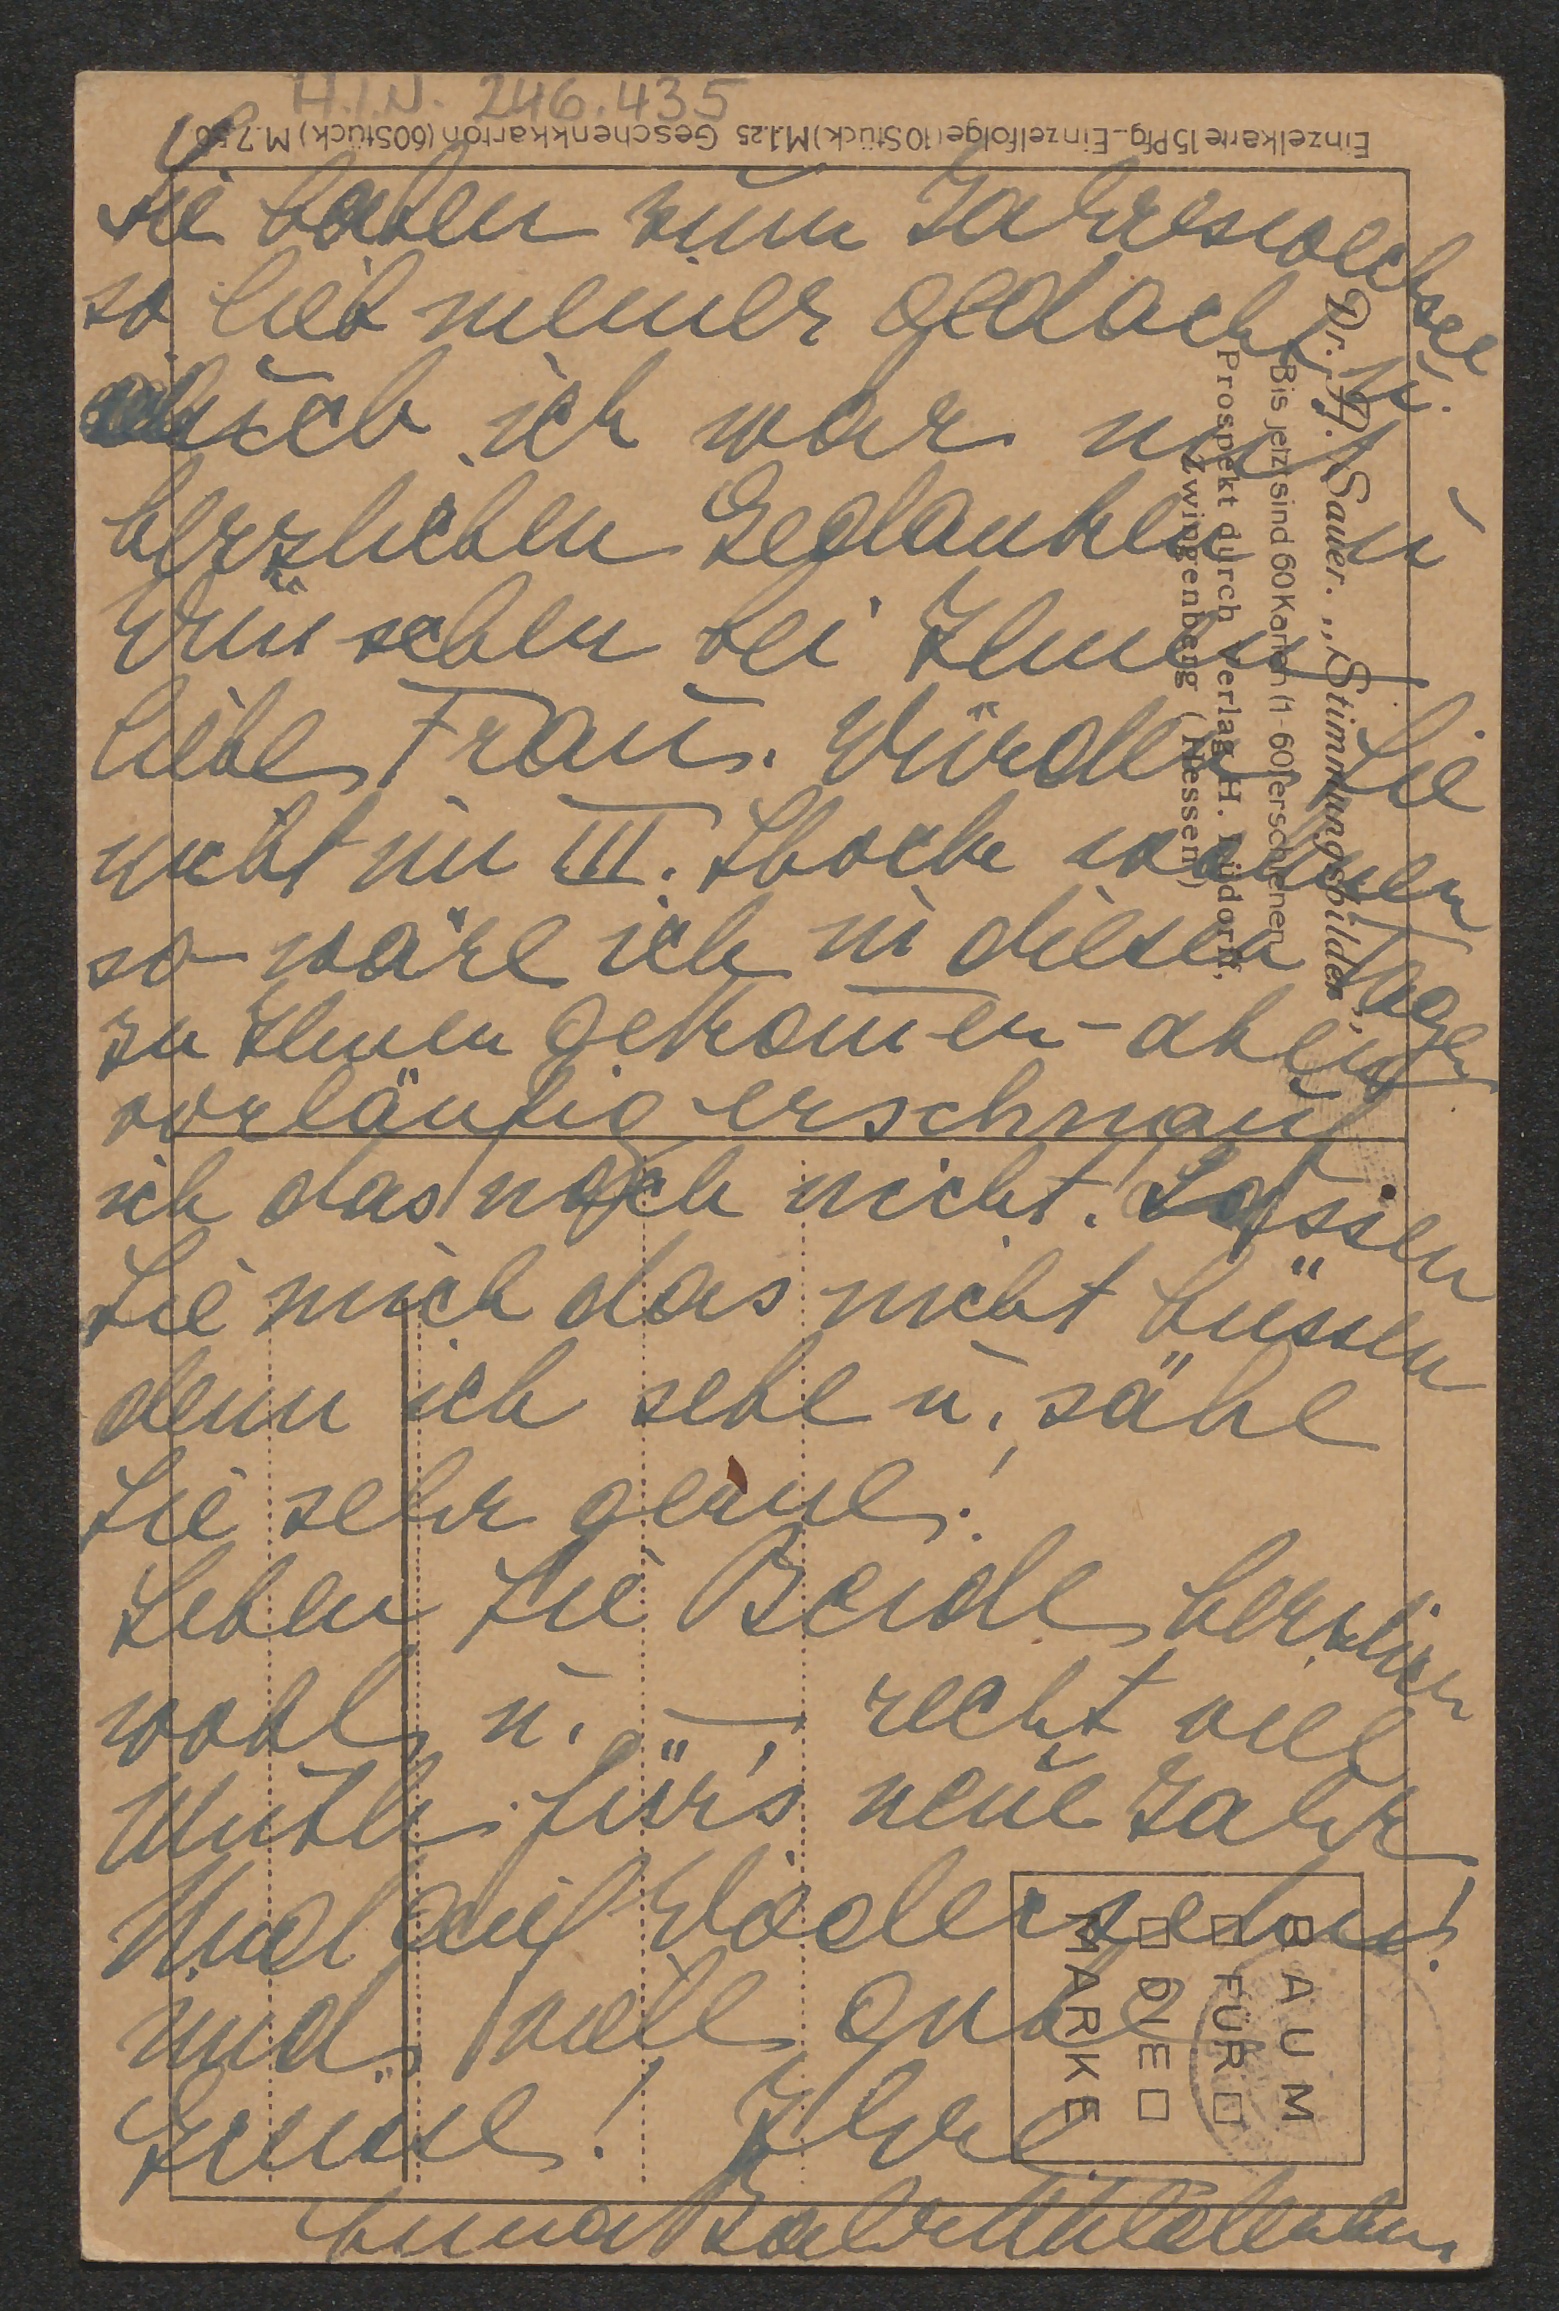 H.I.N. 246.435
Einzelkarte 15 Pfg. Einzelfolge (10 Stück) M.1.25 Geschenkkarton (60 Stück) M. 7.50
Sie haben zum Jahreswechsel
so lieb meiner gedacht, u.
auch ich war mit
herzlichen Gedanken u
Wünschen bei Ihnen
liebe Frau. Würden Sie
nicht im III. Stocke wohnen
so wäre ich in diesen Tagen
zu Ihnen gekom̄en – aber
vorläufig erschnauf
ich das noch nicht. Lassen
Sie mich das nicht büssen
denn ich sehe u. sähe
Sie sehr gerne!
Leben Sie Beide herzlich
wohl u. – recht viel
Muth für's neue Jahr
Und auf Wiedersehn!
und viele gute
Grüsse! Ihre
Anna Bahr Mildenburg
Dr. A. Sauer. „Stimmungsbilder„
Bis jetzt sind 60 Karten (1-60) erschienen
Prospekt durch Verlag H. Lüdorff,
Zwingenberg (Hessen)
BAUM
FÜR
DIE
MARKE